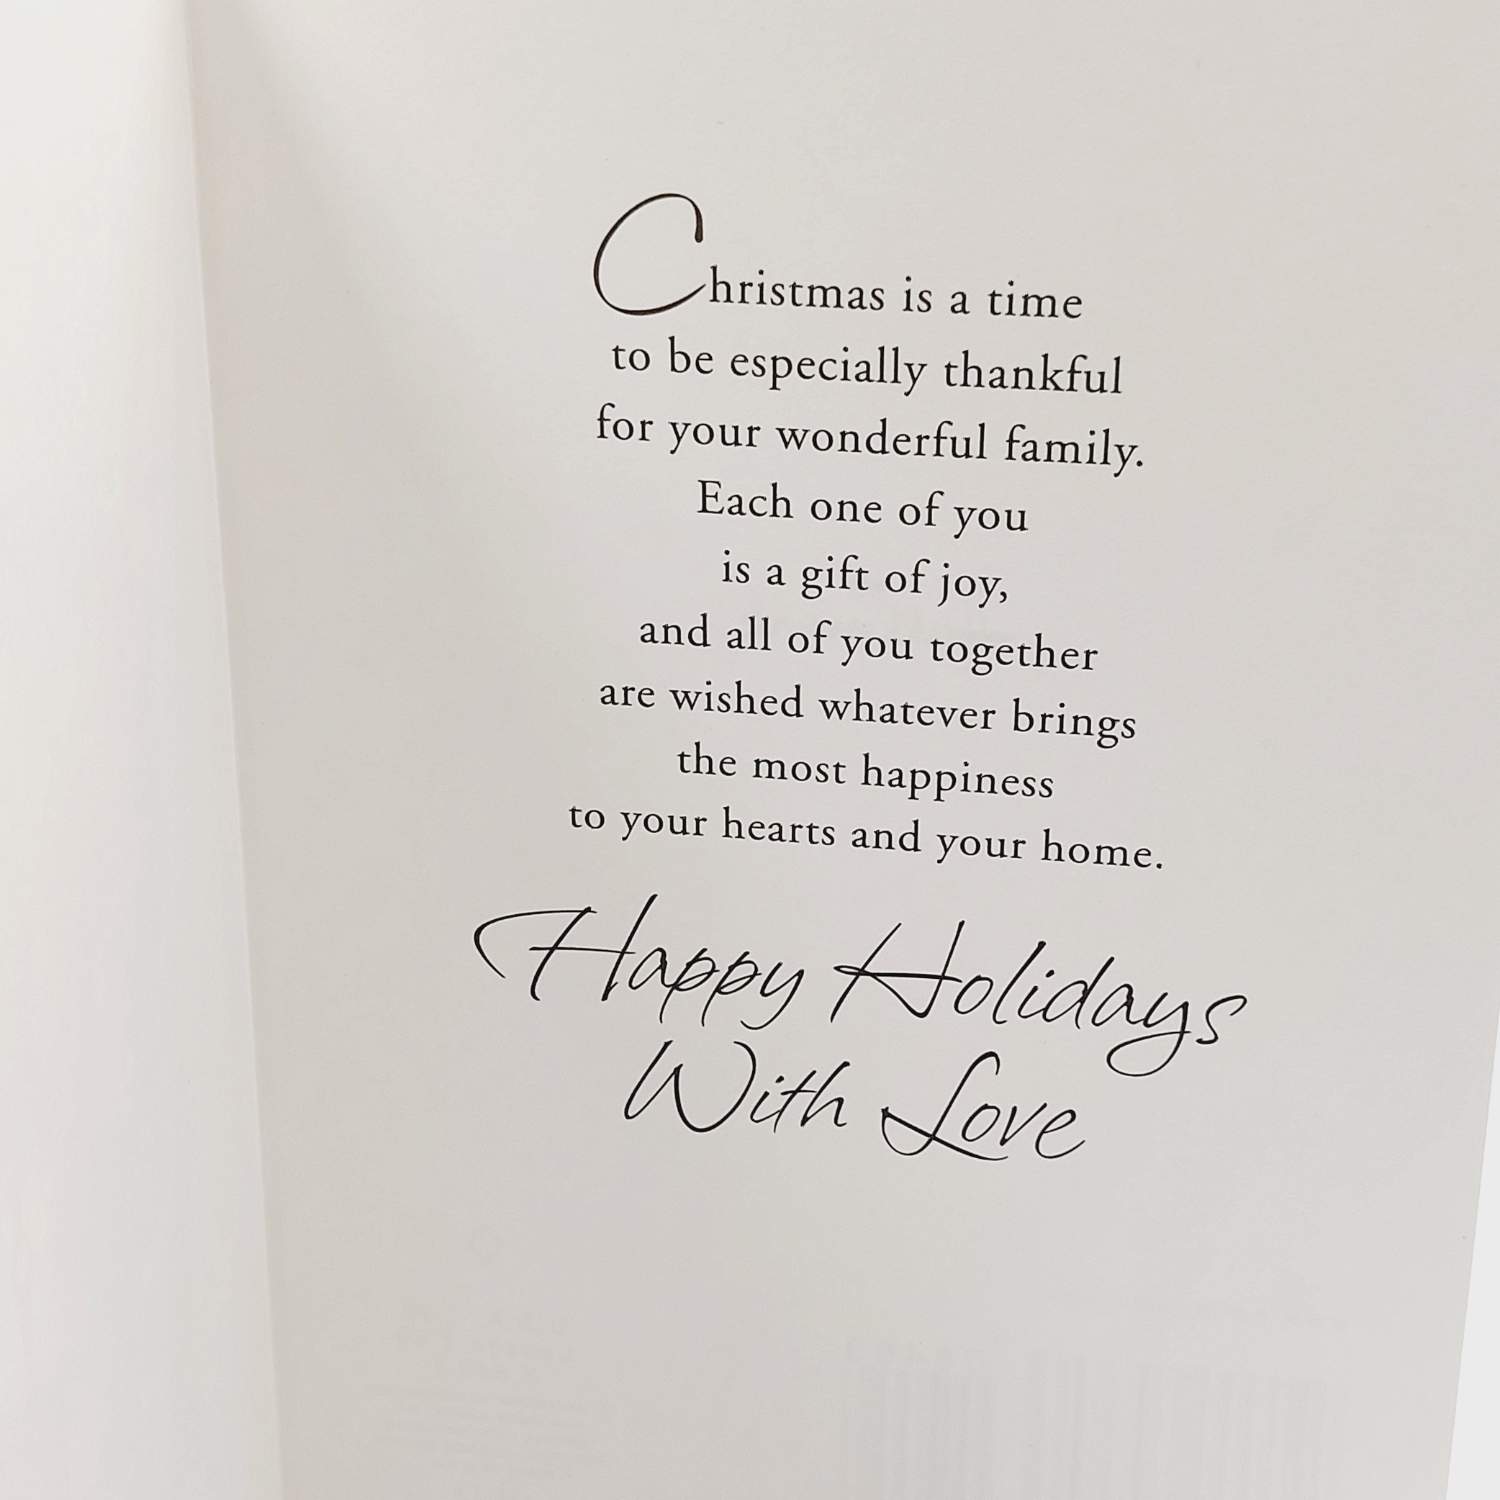 Christmas is a time
to be especially thankful
for your wonderful family.
Each one of you
is a gift of joy,
and all of you together
are wished whatever brings
the most happiness
to your hearts and your home.
Happy Holidays
With Love